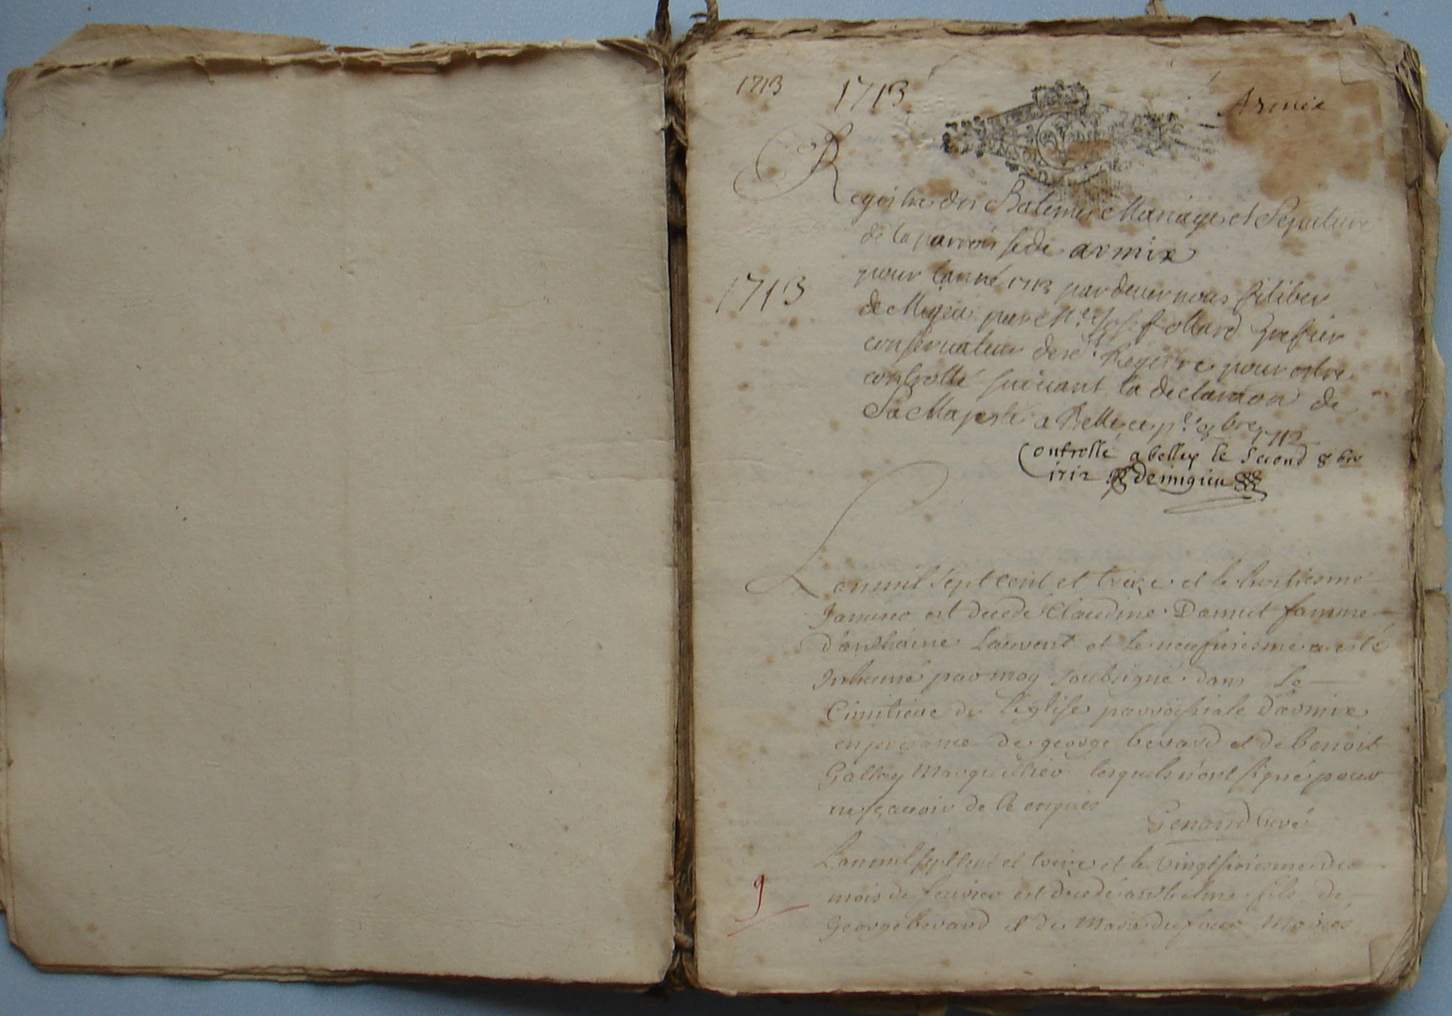 1713 1713 Armix
Registre des Batemes Mariage et Sepulture
de la parroisse de armix
pour lanné 1713 par devers nous filiber
de Migieu pure Mre Josef ollard Grefier
conservateur de Registre pour estre
1713
controllé suivant la declaraon de
Sa Majesté a Belley ce pr 8bre 1712
Controllé a belley le second 8bre
1712 demigieu
Lan mil sept cent et treize et le huitiesme
Janvier est decede Claudine Damet famme
d'anthoine Laurent et le neufviesme a esté
Inhumé par moy soubsigné dans le
Cimitiere de l'Eglise parroissiale d'armix
en presance de george bevard et de benoit
Galley Marguillier lesquels n'ont signé pour
ne sçavoir de ce enquis
curé
Lan mil sept cent et treize et le vingt
mois de feuvrier est decedé anthelme fils de
9
George bevard et de Marie mariés